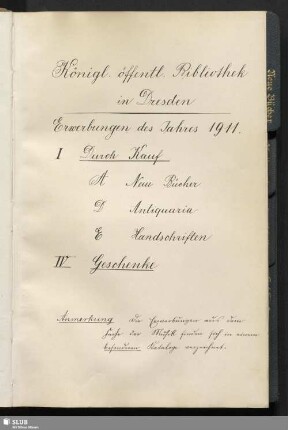 Königl. öffentl. Bibliothek
in Dresden
Erwerbungen des Jahres 1911.
I Durch Kauf
A Neue Bücher
D Antiquaria
E Handschriften
IV Geschenke
Anmerkung Die Erwerbungen aus dem
Fache der Musik finden sich in einem
besonderen Kataloge verzeichnet.
Neue Bücher
SLUB
Wir führen Wissen.